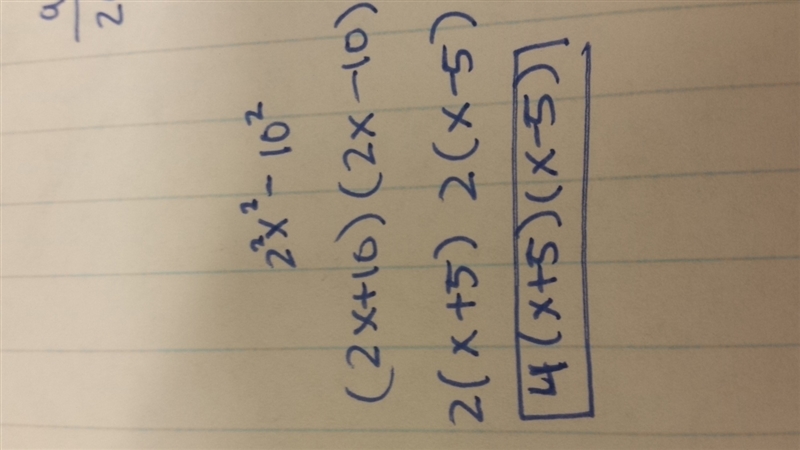 9
2
2²x² - 10²
(2x+10)(2x-10)
2(x+5) 2(x-5)
4(x+5)(x-5)